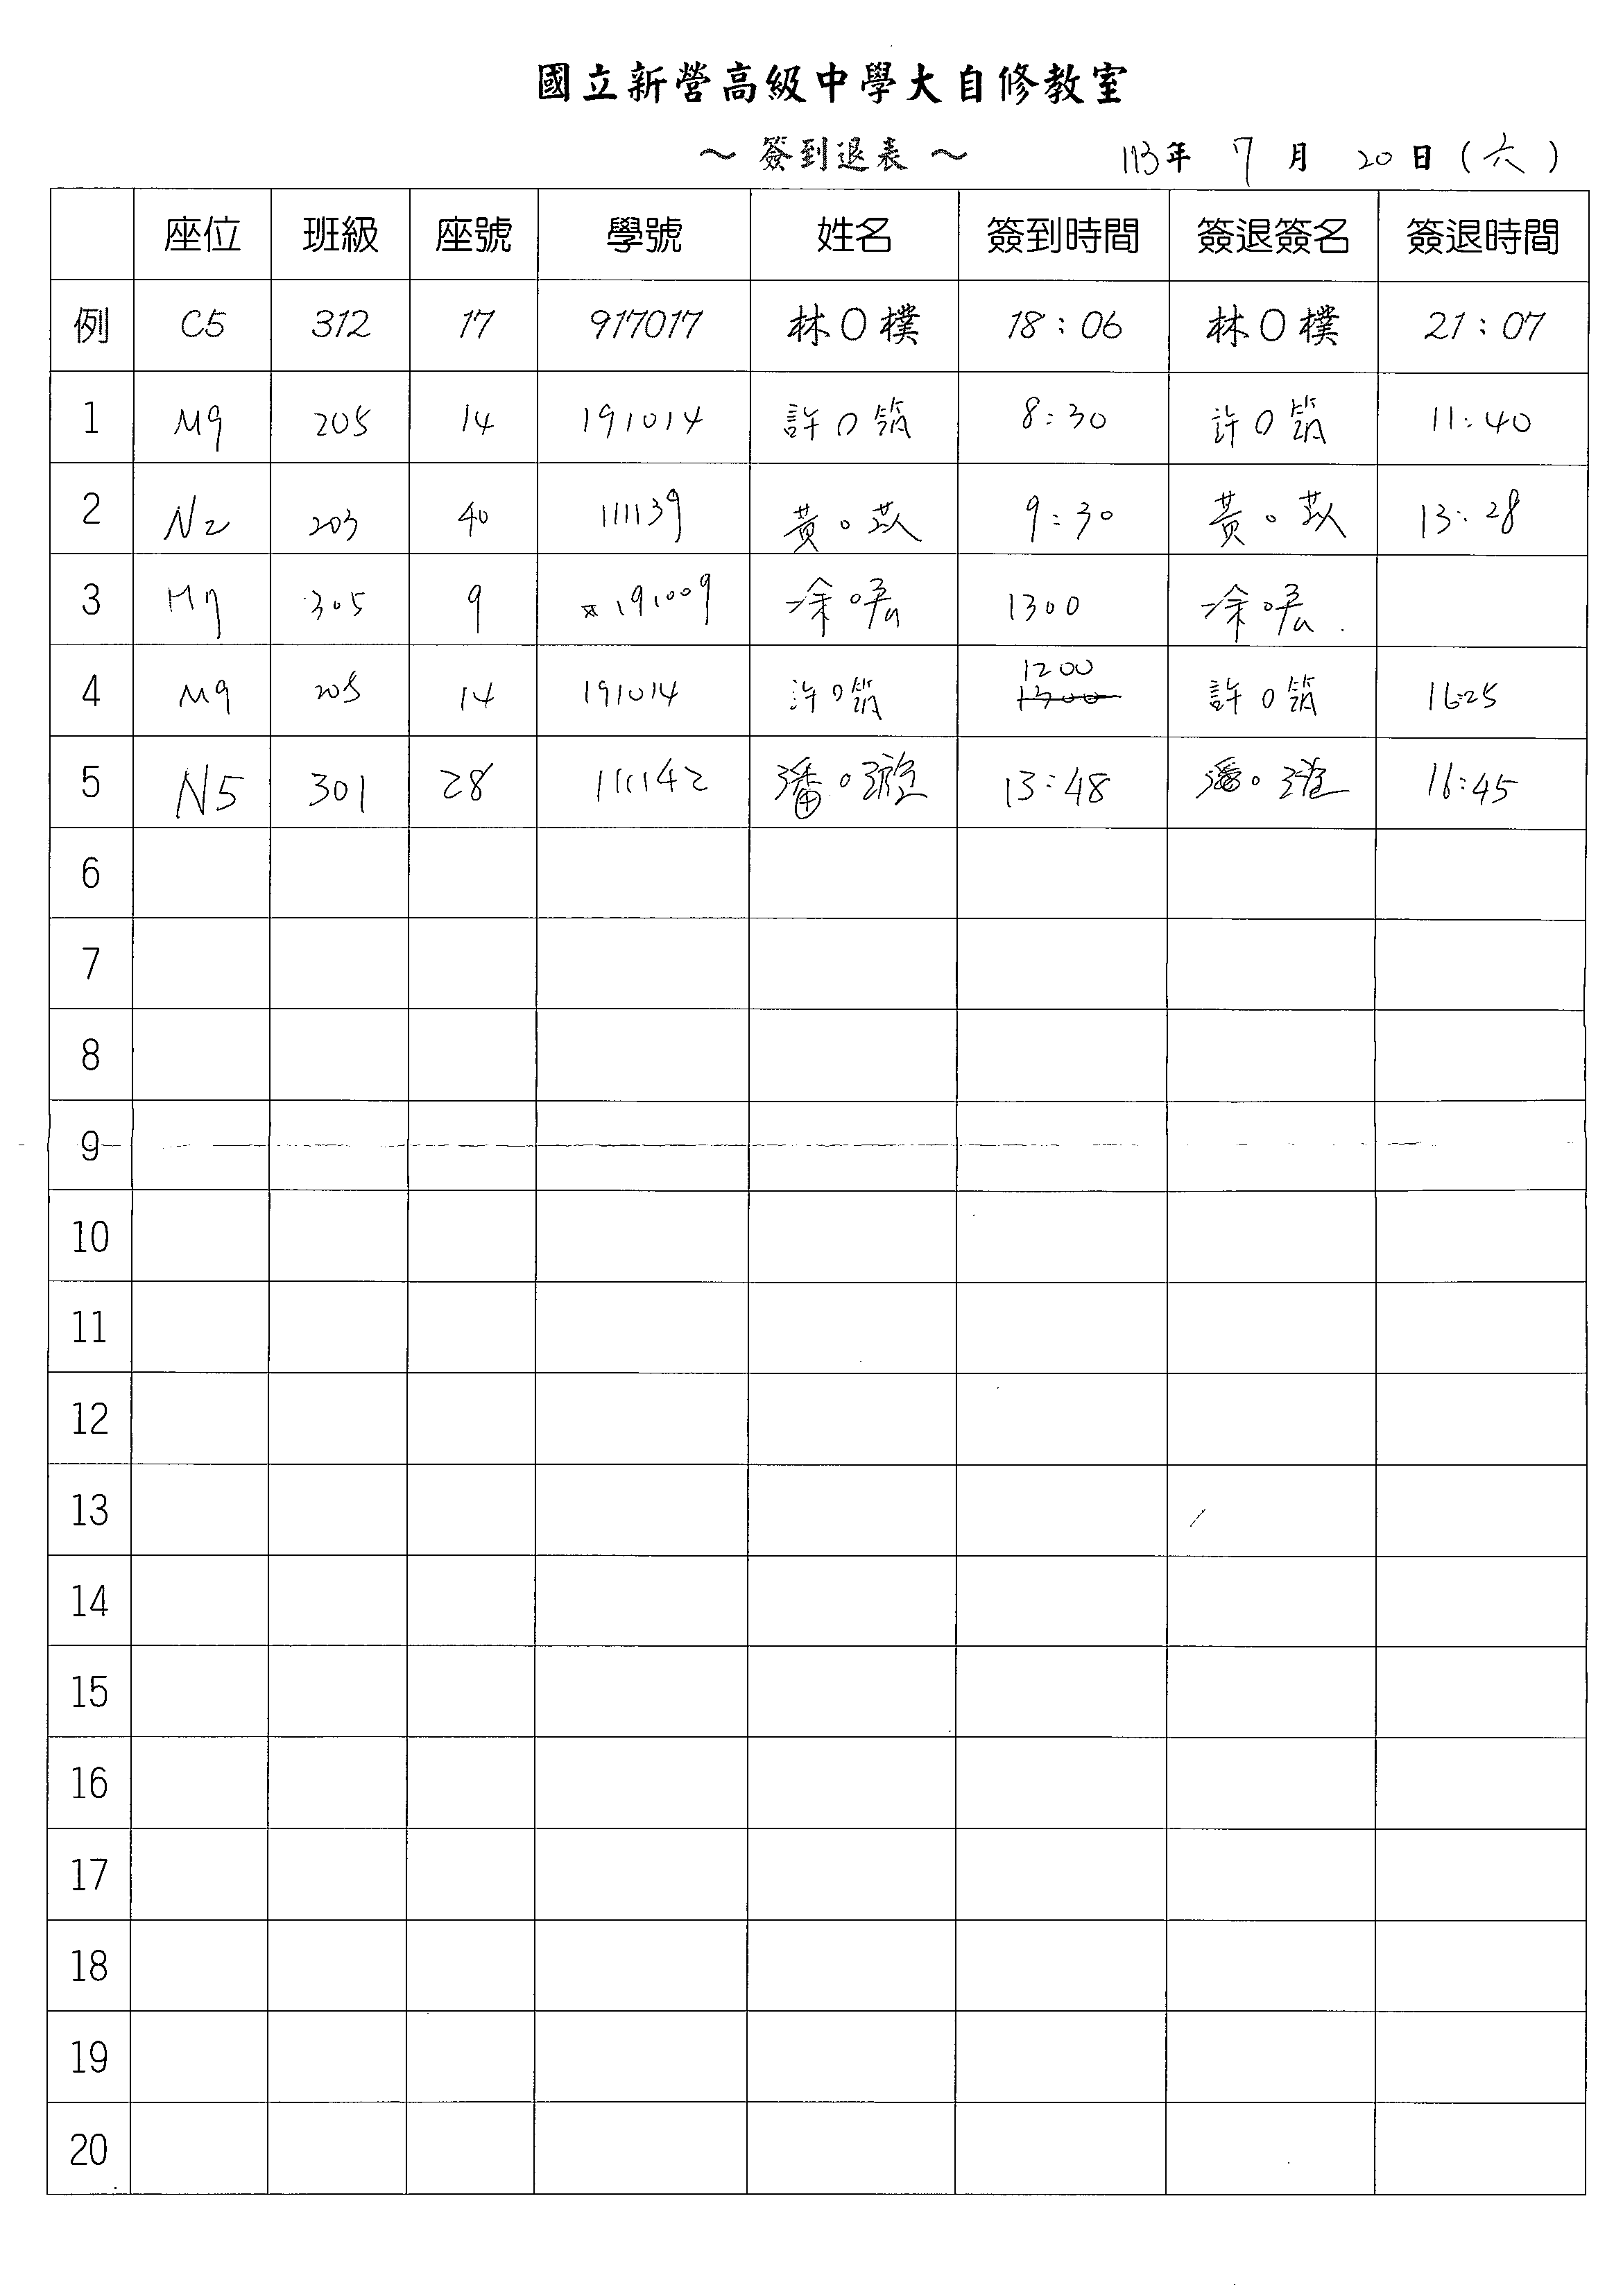 國立新營高級中學大自修教室
～ 簽到退表 ～ 113年 7 月 20 日 ( 六 )
座位 班級 座號 學號 姓名 簽到時間 簽退簽名 簽退時間
例 C5 312 17 917017 林O樸 18:06 林O樸 21:07
1 M9 205 14 191014 許O筑 8:30 許O筑 11:40
2 N2 203 40 111139 黃○苡 9:30 黃○苡 13:28
3 M7 305 9 191009 涂○ 1300 涂○
4 M9 205 14 191014 許O筑 1200 1300 許O筑 16:25
5 N5 301 28 111142 潘○璇 13:48 潘○璇 16:45
6
7
8
9
10
11
12
13
14
15
16
17
18
19
20